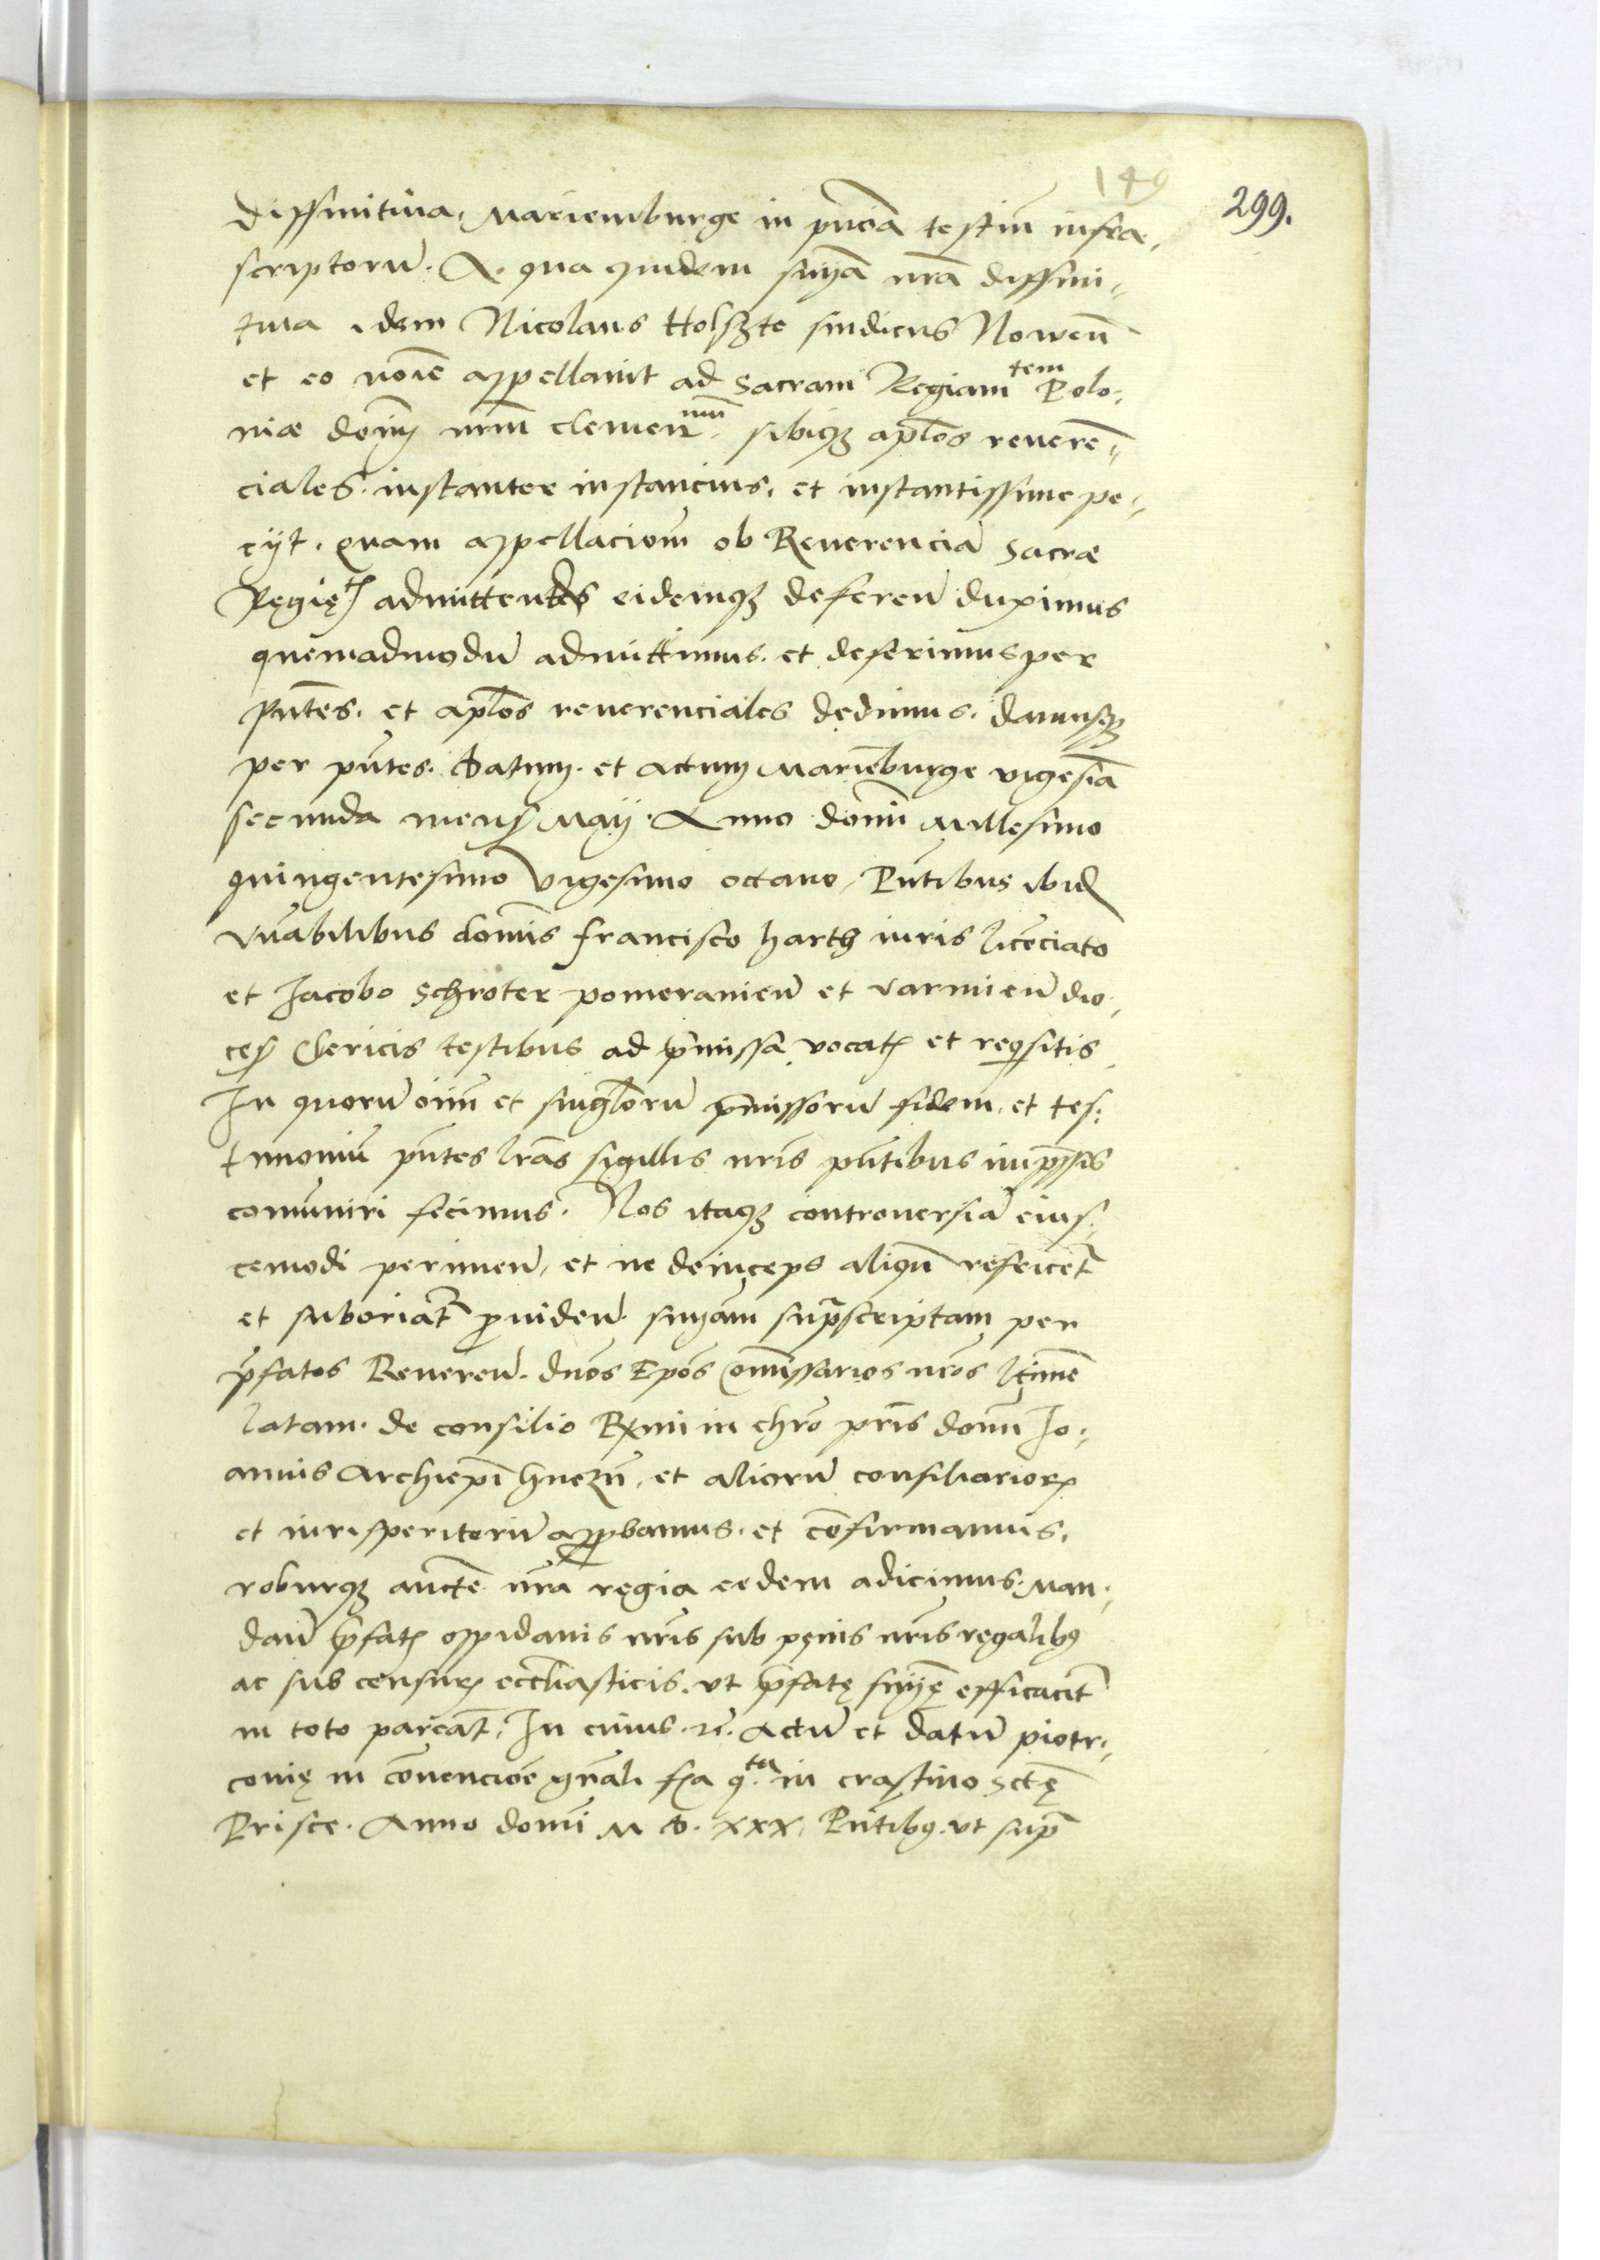 149
299.
diffinitiua. Mariemburge in pn̄cia testiū infra,
scriptorū. A qua quidem sn̄ia nr̄a diffini,,
tiua idem Nicolaus Holszte sindicus Nowen̄
et eo noīe appellauit ad Sacram Regiam tem Polo,
niæ dom̄ nr̄m clemen mū. sibiqꝫ aplōs reuerē,,
ciales. instanter instancius. et instantissime pe,,
cijt. Quam appellacionē ob Reuerenciā Sacræ
Regię tis admittendos eidemqꝫ deferen̄ duximus
quemadmodū admittimus. et deferimus per
pn̄tes. et aplōs reuerenciales dedimus. damusqꝫ
per pn̄tes. Datum. et actum Mariēburge vigesiā
secunda mens Maij. Anno domī Millesimo
quingentesimo vigesimo octauo, Pn̄tibus ibid
vn̄abilibus domīs francisco harth iuris licēciato
et Jacobo Schroter pomeranien̄ et varmien̄ dio,
ceš Clericis testibus ad p̄missa vocatis et reqsitis.
In quorū oīm et singlōrū p̄missorū fidem. et tes,
timoniū pn̄tes lr̄as sigillis nr̄is pn̄tibus imp̄ssis
comuniri fecimus. Nos itaqꝫ controuersiā eius,
cemodi perimen̄, et ne deinceps aliqn̄ refricet̄
et suboriat̄ ꝓuiden̄. sn̄iam sup̄scriptam per
p̄fatos Reueren̄. dnōs Epōs Com̄issarios nr̄os l̄time
latam. de consilio Rmi in chrō pr̄is domī Jo,
annis Archiepī Gnezn̄, et aliorū consiliarioꝝ
et iurisperitorū apꝓbamus. et cōfirmamus.
roburqꝫ auctē nr̄a regia eedem adicimus. Man,
dan̄ p̄fatis oppidanis nr̄is sub pęnis nr̄is regalibꝰ
ac sub censuris eccl̄iasticis. vt p̄fatę sn̄ię efficacit̄
in toto pareāt. In cuius. rē. Actū et datū piotr,
conię in cōuencioē gn̄ali fīa q ta in crastino Sctę
Prisce. Anno domī M D. xxx, Pn̄tibꝰ. vt sup̄